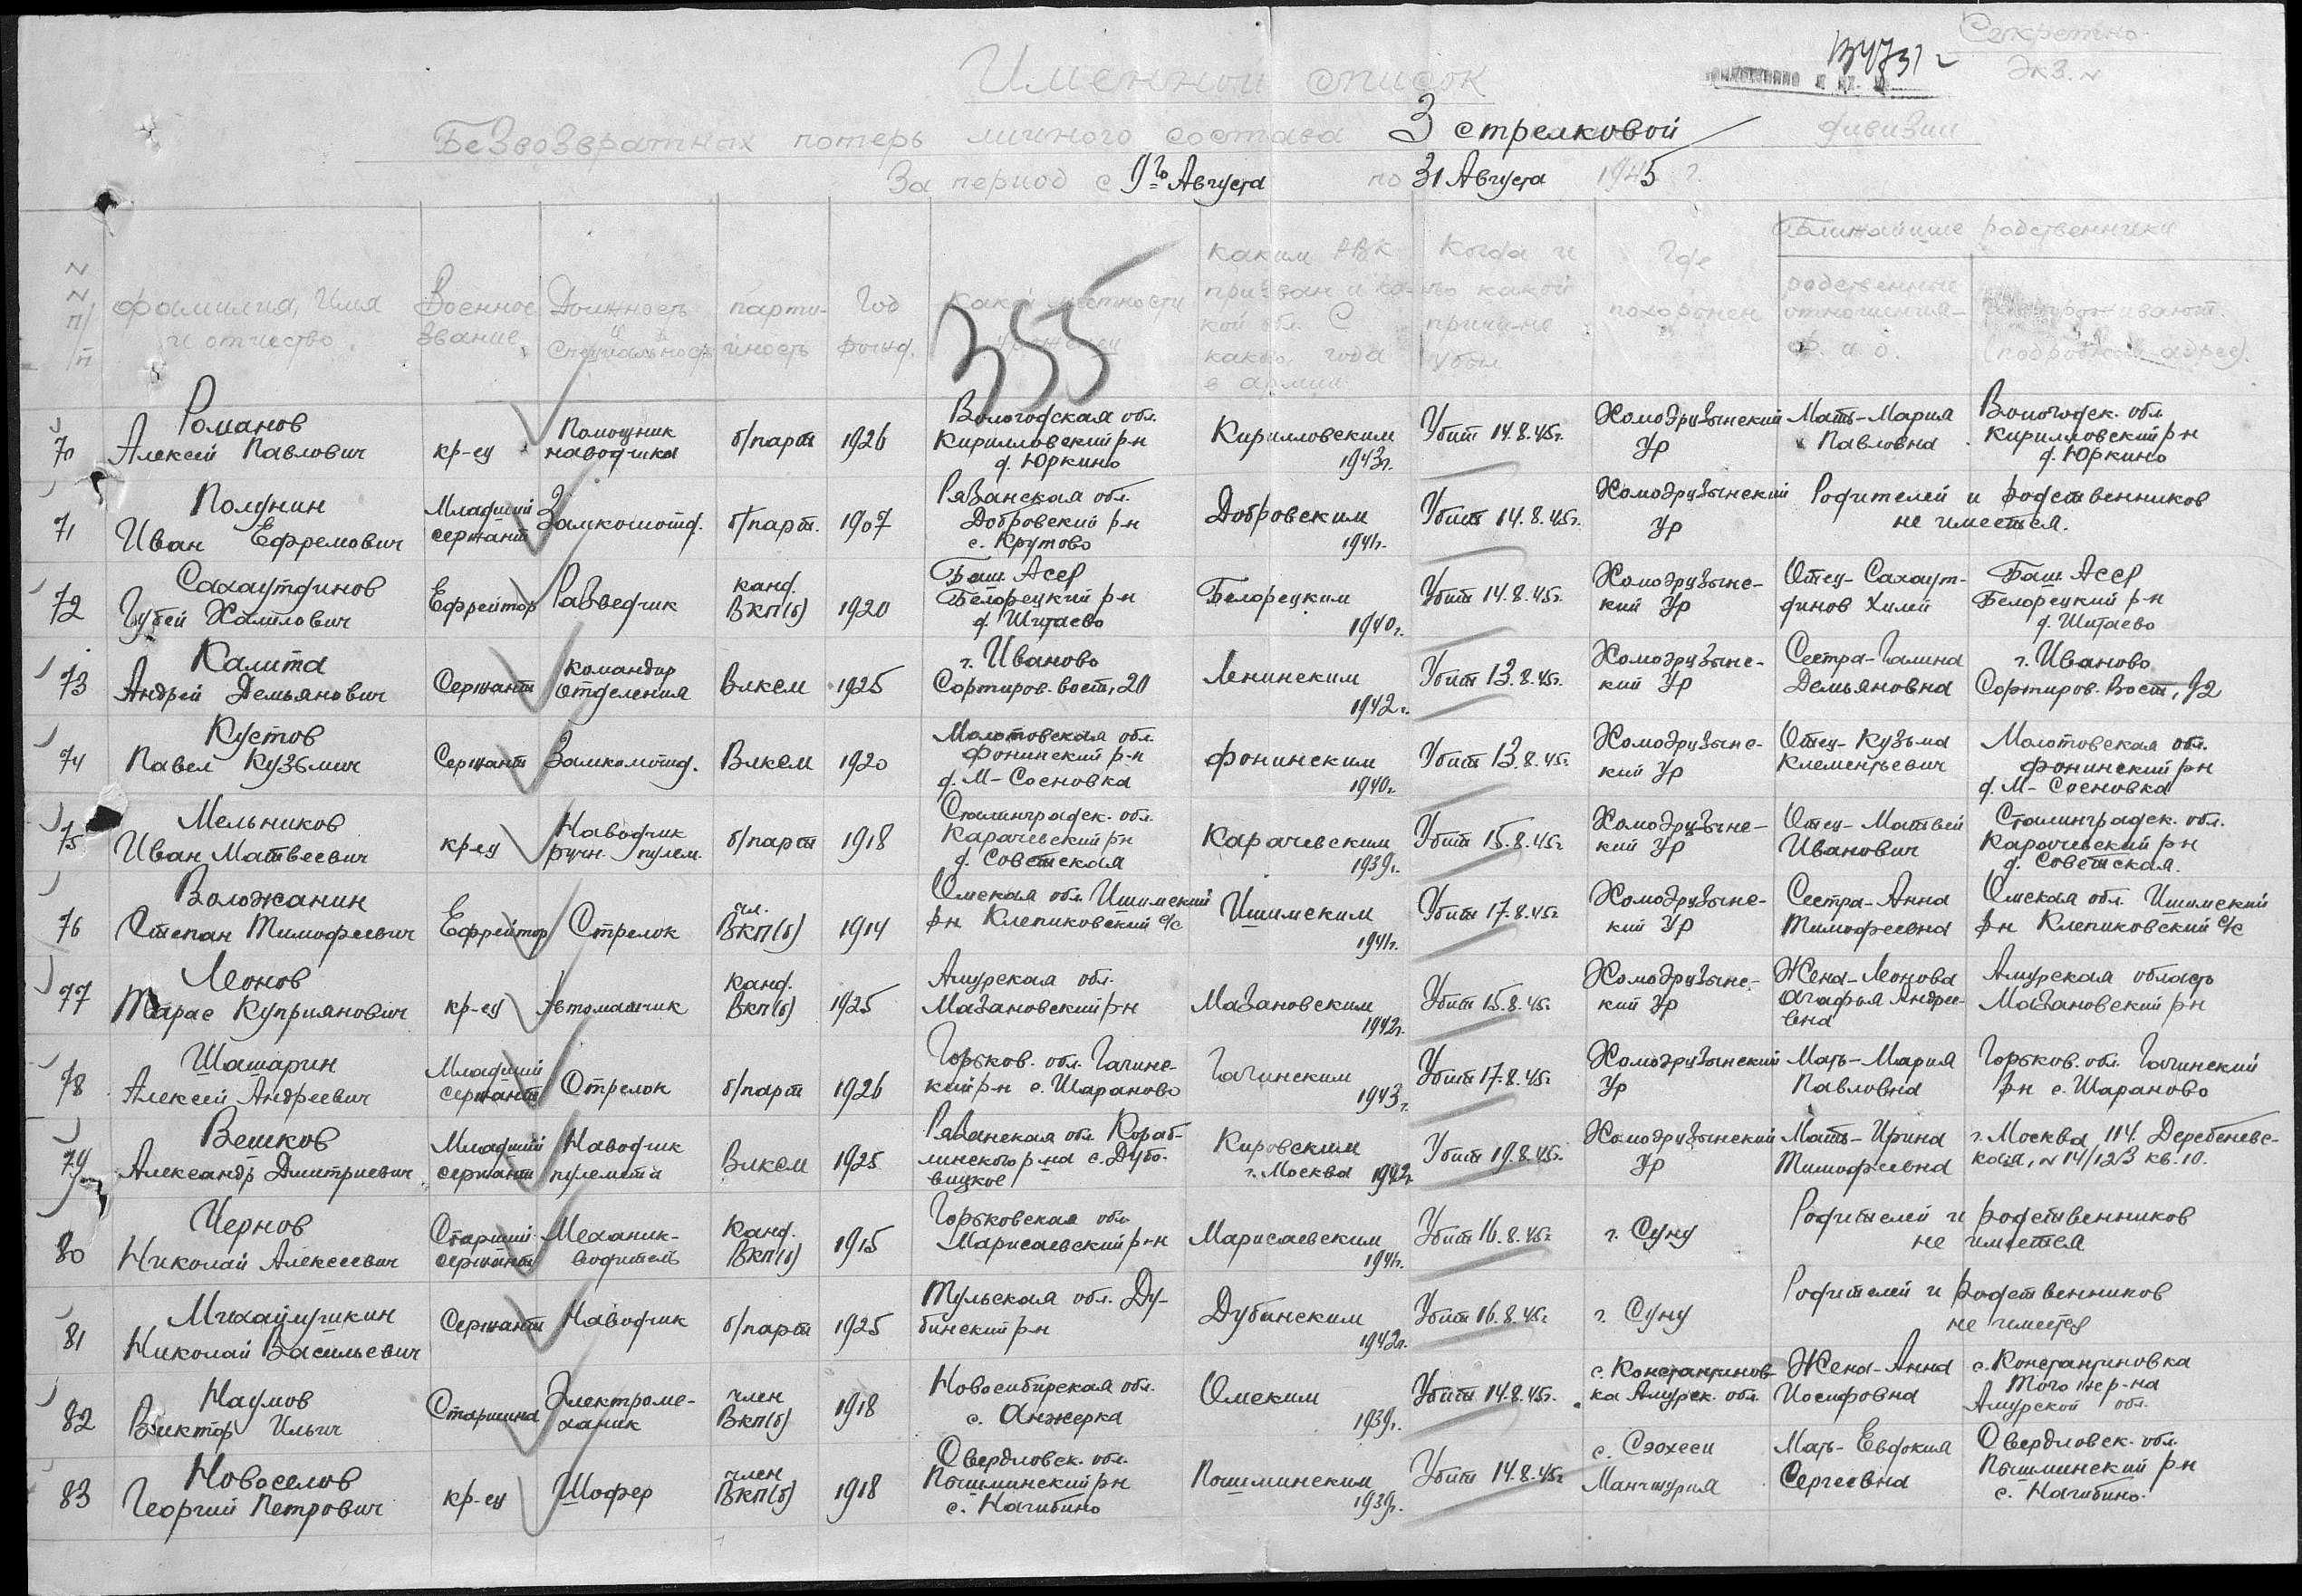 Секретно
Экз. №
Именной список
Безвозвратных потерь личного состава 3 стрелковой дивизии
За период с 9го Августа по 31 Августа 1945 г.
355
№ № п/п
фамилия, Имя и отчество.
Военное звание
Должность и специальность
партийность
Год рожд.
какой местности уроженец
каким РВК призван и какой обл. С какого года в армии
Когда и по какой причине убыл
Где похоронен
Ближайшие родственники
родственные отношения ф. и о.
проживают (подробный адрес).
70 Романов Алексей Павлович кр-ец Помощник наводчика б/парт 1926 Вологодская обл. Кирилловский р-н д. Юркино Кирилловским 1943г. Убит 14.8.45г. Хомодрузынский Ур Мать-Мария Павловна Вологодск. обл Кирилловский р-н д. Юркино
71 Полунин Иван Ефремович Младший сержант Замкомотд. б/парт. 1907 Рязанская обл. Добровский р-н с. Крутово Добровским 1941г. Убит 14.8.45г. Хомодрузынский Ур Родителей и родственников не имеется.
72 Сахаутдинов Губей Халилович Ефрейтор Разведчик канд. ВКП(б) 1920 Баш. Асср Белорецкий р-н д. Шигаево Белорецким 1940г. Убит 14.8.45г. Хомодрузынский Ур Отец-Сахаутдинов Халил Баш Асср Белорецкий р-н д. Шигаево
73 Калита Андрей Демьянович Сержант командир отделения Влксм 1925 г. Иваново Сортиров. вост, 20 Ленинским 1942г. Убит 13.8.45г. Хомодрузынский Ур Сестра-Галина Демьяновна г. Иваново Сортиров. Вост, 92
74 Кустов Павел Кузьмич Сержант Замкомотд. Влксм 1920 Молотовская обл. фокинский р-н д. М-Сосновка фокинским 1940г. Убит 13.8.45г. Хомодрузынский Ур Отец-Кузьма Клементьевич Молотовская обл. фокинский р-н д. М-Сосновка
75 Мельников Иван Матвеевич кр-ец Наводчик ручн. пулем. б/парт 1918 Сталинградск. обл. Карачевский р-н д. Советская Карачевским 1939г. Убит 15.8.45г. Хомодрузынский Ур Отец-Матвей Иванович Сталинградск. обл. Карачевский р-н д. Советская.
76 Воложанин Степан Тимофеевич Ефрейтор Стрелок чл. ВКП(б) 1914 Омская обл Ишимский р-н Клепиковский с/с Ишимским 1941г. Убит 17.8.45г. Хомодрузынский Ур Сестра-Анна Тимофеевна Омская обл. Ишимский р-н Клепиковский с/с
77 Леонов Тарас Куприянович кр-ец Автоматчик Канд. ВКП(б) 1925 Амурская обл. Мазановский р-н Мазановским 1942г. Убит 15.8.45г. Хомодрузынский Ур Жена-Леонова Агафья Андреевна Амурская область Мазановский р-н
78 Шашарин Алексей Андреевич Младший сержант Стрелок б/парт 1926 Горьков. обл. Гагинский р-н с. Шараново Гагинским 1943г. Убит 17.8.45г. Хомодрузынский Ур Мать-Мария Павловна Горьков. обл. Гагинский р-н с. Шараново
79 Вешков Александр Дмитриевич Младший сержант Наводчик пулемета Влксм 1925 Рязанская обл Кораблинского р-на с. Дубовицкое Кировским г. Москва 1942г Убит 19.8.45г. Хомодрузынский Ур Мать-Ирина Тимофеевна г. Москва 114. Деребеневская, №14/12В кв. 10.
80 Чернов Николай Алексеевич Старший сержант Механик-водитель Канд. ВКП(б) 1915 Горьковская обл Марисаевский р-н Марисаевским 1941г. Убит 16.8.45г г. Суну Родителей и родственников не имеется
81 Николай Васильевич Сержант Наводчик б/парт 1925 Тульская обл. Дубинский р-н Дубинским 1942г. Убит 16.8.45г г. Суну Родителей и родственников не имеется
82 Наумов Виктор Ильич Старшина Электромеханик член ВКП(б) 1918 Новосибирская обл. с. Анжерка Омским 1939г. Убит 14.8.45г. с. Константиновка Амурск. обл. Жена-Анна Иосифовна с. Константиновка того же р-на Амурской обл.
83 Новоселов Георгий Петрович кр-ец Шофер член ВКП(б) 1918 Свердловск. обл. Пышминский р-н с. Нагибино Пышминским 1939г. Убит 14.8.45г с. Сяохеси Манчжурия Мать-Евдокия Сергеевна Свердловск. обл. Пышминский р-н с. Нагибино.